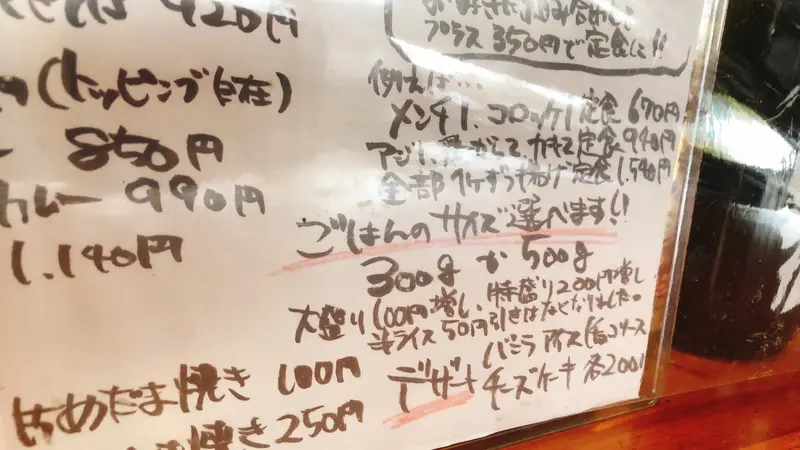 920円
(トッピング自在)
850円
カレー 990円
1.140円
プラス350円で定食に!!
例えば…
メンチ1.コロッケ1定食 670円
定食 940円
全部1ケずつ揚げ定食 1.540円
ごはんのサイズ選べます!!
300g か 500g
大盛り100円増し 特盛り200円増し
半ライス50円引きはなくなりました。
めだま焼き 100円
焼き 250円
デザート
バニラアイス
チーズケーキ 各200